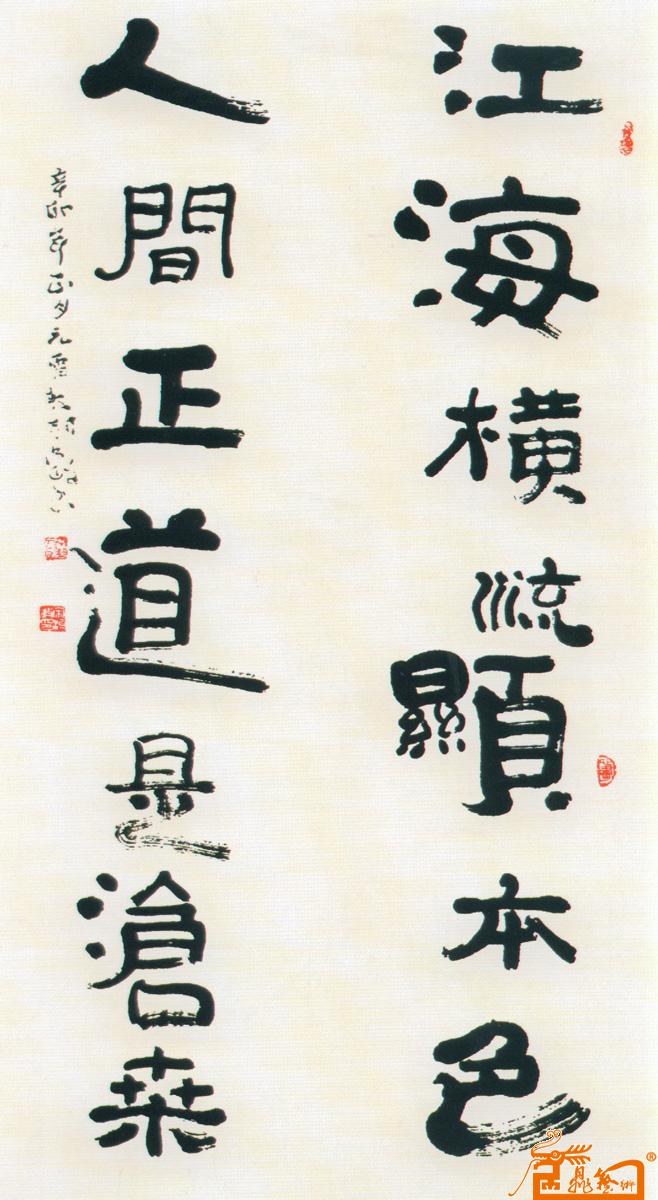 江海橫流顯本色
人間正道是滄桒
辛卯年正月元宵